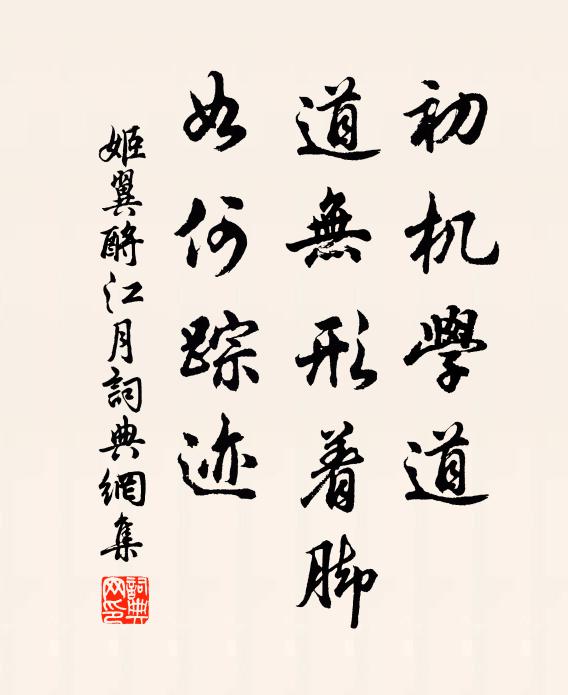 初机學道
道無形着脚
如何踪迹
姬翼酹江月詞典網集
詞典网印